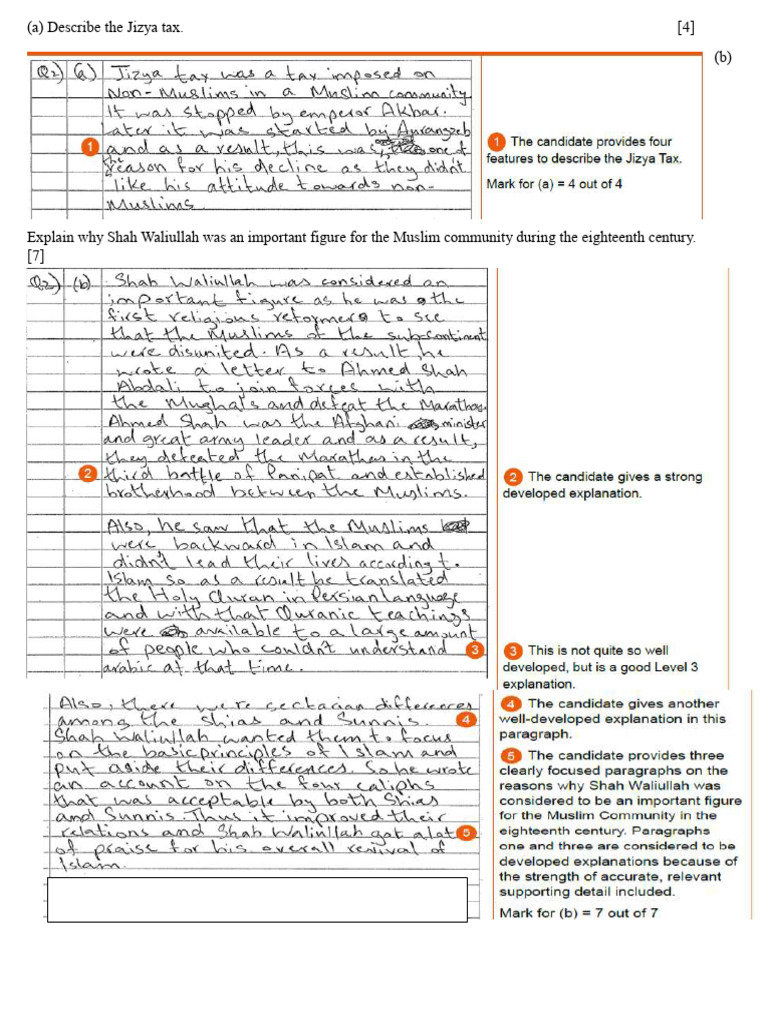 (a) Describe the Jizya tax. [4]
(b)
Q2) (a) Jizya tax was a tax imposed on
Non-Muslims in a Muslim community.
It was stopped by emperor Akbar.
Later it was started by Aurangzeb
1 and as a result, this was one of
the reason for his decline as they didn't
like his attitude towards non-
Muslims.
1 The candidate provides four
features to describe the Jizya Tax.
Mark for (a) = 4 out of 4
Explain why Shah Waliullah was an important figure for the Muslim community during the eighteenth century.
[7]
Q2) (b) Shah Waliullah was considered an
important figure as he was the
first religious reformer to see
that the Muslims of the sub-continent
were disunited. As a result, he
wrote a letter to Ahmed Shah
Abdali to join forces with
the Mughals and defeat the Marathas.
Ahmed Shah was the Afghani minister
and great army leader and as a result,
they defeated the Marathas in the
2 third battle of Panipat and established
brotherhood between the Muslims.
2 The candidate gives a strong
developed explanation.
Also, he saw that the Muslims
were backward in Islam and
didn't lead their lives according to
Islam so as a result he translated
the Holy Quran in Persian language
and with that Quranic teachings
were available to a large amount
of people who couldn't understand 3
arabic at that time.
3 This is not quite so well
developed, but is a good Level 3
explanation.
Also, there were sectarian differences
among the Shias and Sunnis. 4
Shah Waliullah wanted them to focus
on the basic principles of Islam and
put aside their differences. So he wrote
an account on the four caliphs
that was acceptable by both Shias
and Sunnis. Thus it improved their
relations and Shah Waliullah got a lot 5
of praise for his overall revival of
Islam.
4 The candidate gives another
well-developed explanation in this
paragraph.
5 The candidate provides three
clearly focused paragraphs on the
reasons why Shah Waliullah was
considered to be an important figure
for the Muslim Community in the
eighteenth century. Paragraphs
one and three are considered to be
developed explanations because of
the strength of accurate, relevant
supporting detail included.
Mark for (b) = 7 out of 7